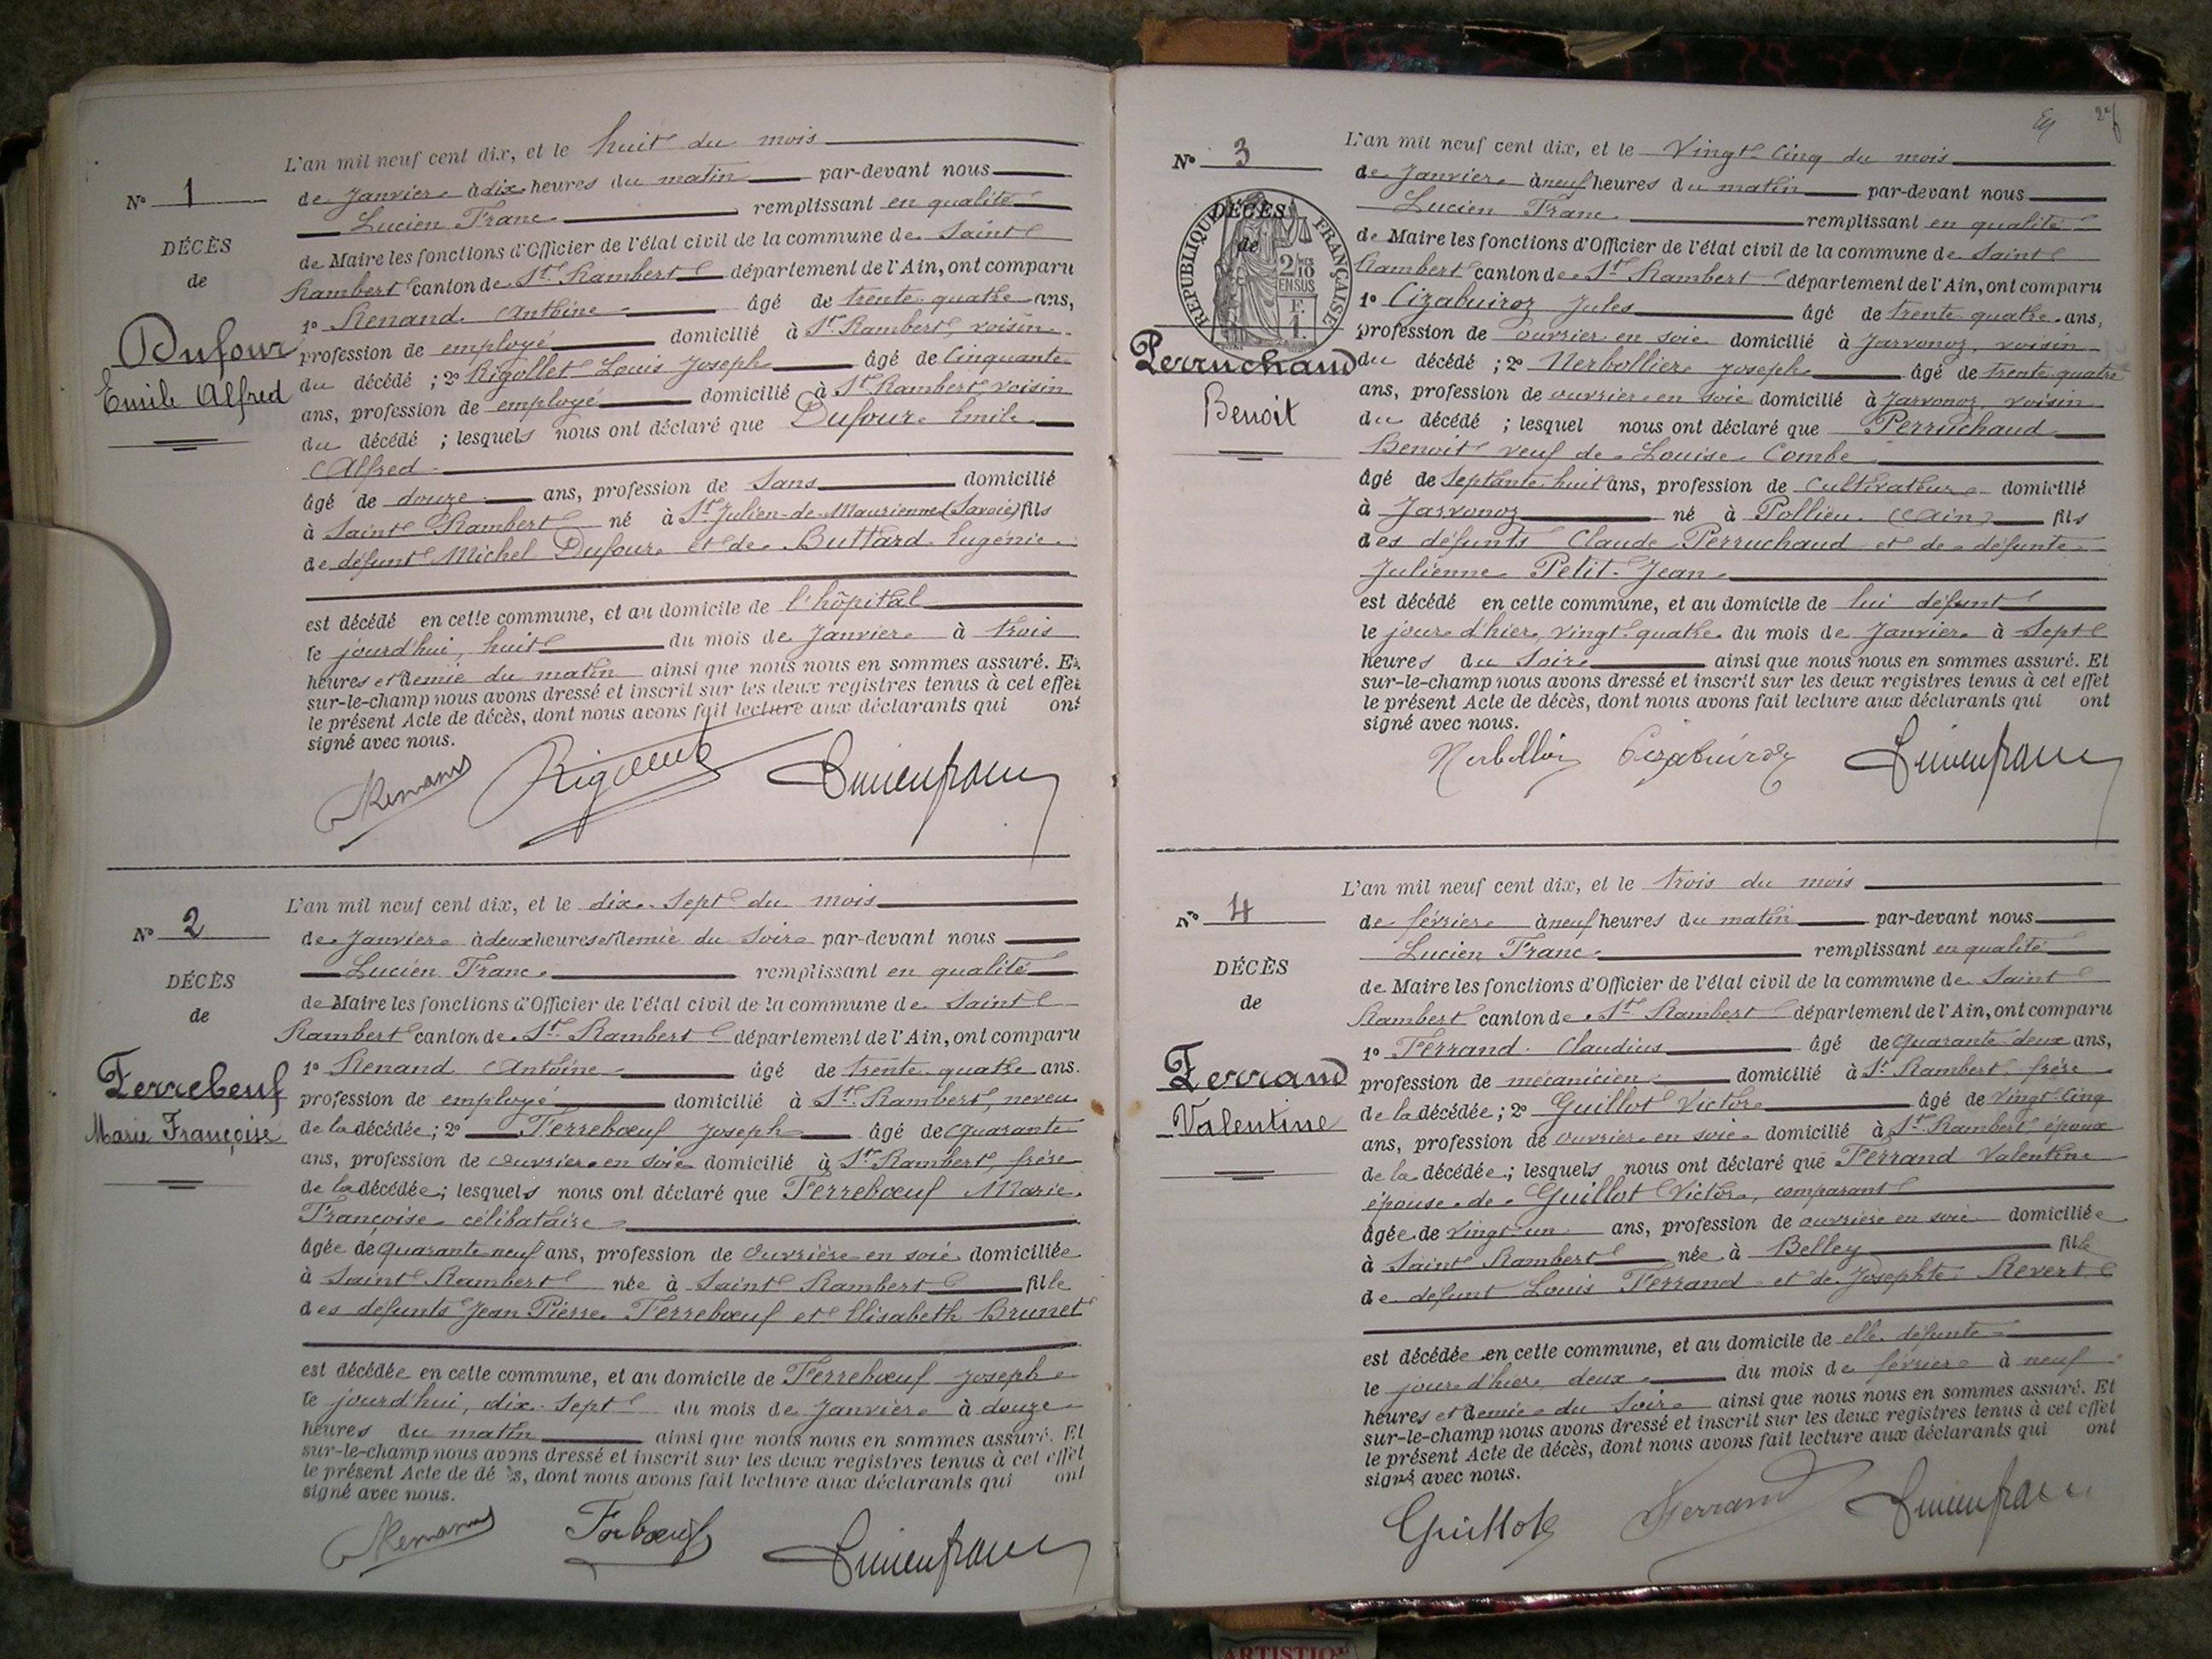 L'an mil neuf cent dix, et le huit du mois
N° 1
de Janvier à dix heures du matin par-devant nous
Lucien Franc remplissant en qualité
DÉCÈS
de Maire les fonctions d'Officier de l'état civil de la commune de Saint
de
Rambert canton de St Rambert département de l'Ain, ont comparu
1° Renand Antoine âgé de trente quatre ans,
Dufour
profession de employé domicilié à St Rambert, voisin
Emile Alfred
du décédé ; 2° Rigollet Louis Joseph âgé de Cinquante
ans, profession de employé domicilié à St Rambert, voisin
du décédé ; lesquels nous ont déclaré que Dufour Emile
Alfred
âgé de douze ans, profession de Sans domicilié
à Saint Rambert né à St Julien-de-Maurienne (Savoie) fils
de défunt Michel Dufour et de Buttard Eugénie
est décédé en cette commune, et au domicile de l'hôpital
le jourd'hui, huit du mois de Janvier à trois
heures et demie du matin ainsi que nous nous en sommes assuré. Et
sur-le-champ nous avons dressé et inscrit sur les deux registres tenus à cet effet
le présent Acte de décès, dont nous avons fait lecture aux déclarants qui ont
signé avec nous.
Renand Rigollet Lucien franc
L'an mil neuf cent dix, et le dix-Sept du mois
N° 2
de Janvier à deux heures et demie du Soir par-devant nous
Lucien Franc remplissant en qualité
DÉCÈS
de Maire les fonctions d'Officier de l'état civil de la commune de Saint
de
Rambert canton de St Rambert département de l'Ain, ont comparu
1° Renand Antoine âgé de trente quatre ans.
Ferrebeuf
profession de employé domicilié à St Rambert, neveu
Marie Françoise
de la décédée ; 2° Ferrebœuf Joseph âgé de Quarante
ans, profession de Ouvrier en soie domicilié à St Rambert, frère
de la décédée ; lesquels nous ont déclaré que Ferrebœuf Marie
Françoise célibataire
âgée de Quarante neuf ans, profession de Ouvrière en soie domiciliée
à Saint Rambert née à Saint Rambert fille
des défunts Jean Pierre Ferrebœuf et Elisabeth Brunet
est décédée en cette commune, et au domicile de Ferrebœuf Joseph
le jourd'hui, dix-Sept du mois de Janvier à douze
heures du matin ainsi que nous nous en sommes assuré. Et
sur-le-champ nous avons dressé et inscrit sur les deux registres tenus à cet effet
le présent Acte de dé s, dont nous avons fait lecture aux déclarants qui ont
signé avec nous.
Renand Ferbœuf Lucien franc
L'an mil neuf cent dix, et le Vingt-Cinq du mois
N° 3
de Janvier à neuf heures du matin par-devant nous
Lucien Franc remplissant en qualité
DÉCÈS
de
RÉPUBLIQUE FRANÇAISE
2/10 EN SUS
F. 1.
de Maire les fonctions d'Officier de l'état civil de la commune de Saint
Rambert canton de St Rambert département de l'Ain, ont comparu
1° Cizabuiroz Jules âgé de trente quatre ans,
profession de ouvrier en soie domicilié à Javornoz, voisin
Perruchaud
du décédé ; 2° Nerbollier Joseph âgé de trente quatre
Benoit
ans, profession de ouvrier en soie domicilié à Javornoz, voisin
du décédé ; lesquel nous ont déclaré que Perruchaud
Benoit veuf de Louise Combe
âgé de Septante huit ans, profession de Cultivateur domicilié
à Javornoz né à Pollieu (Ain) fils
des défunts Claude Perruchaud et de défunte
Julienne Petit-Jean
est décédé en cette commune, et au domicile de lui défunt
le jour d'hier, vingt-quatre du mois de Janvier à Sept
heures du Soir ainsi que nous nous en sommes assuré. Et
sur-le-champ nous avons dressé et inscrit sur les deux registres tenus à cet effet
le présent Acte de décès, dont nous avons fait lecture aux déclarants qui ont
signé avec nous.
Nerbollier Cizabuiroz Lucien franc
L'an mil neuf cent dix, et le trois du mois
N° 4
de février à neuf heures du matin par-devant nous
Lucien Franc remplissant en qualité
DÉCÈS
de Maire les fonctions d'Officier de l'état civil de la commune de Saint
de
Rambert canton de St Rambert département de l'Ain, ont comparu
1° Ferrand Claudius âgé de Quarante deux ans,
Ferrand
profession de mécanicien domicilié à St Rambert, frère
Valentine
de la décédée ; 2° Guillot Victor âgé de Vingt-Cinq
ans, profession de ouvrier en soie domicilié à St Rambert époux
de la décédée ; lesquels nous ont déclaré que Ferrand Valentine
épouse de Guillot Victor, comparant
âgée de vingt-un ans, profession de ouvrière en soie domiciliée
à Saint Rambert née à Belley fille
de défunt Louis Ferrand et de Josephte Revert
est décédée en cette commune, et au domicile de elle défunte
le jour d'hier, deux du mois de février à neuf
heures et demie du Soir ainsi que nous nous en sommes assuré. Et
sur-le-champ nous avons dressé et inscrit sur les deux registres tenus à cet effet
le présent Acte de décès, dont nous avons fait lecture aux déclarants qui ont
signé avec nous.
Guillot Ferrand Lucien franc